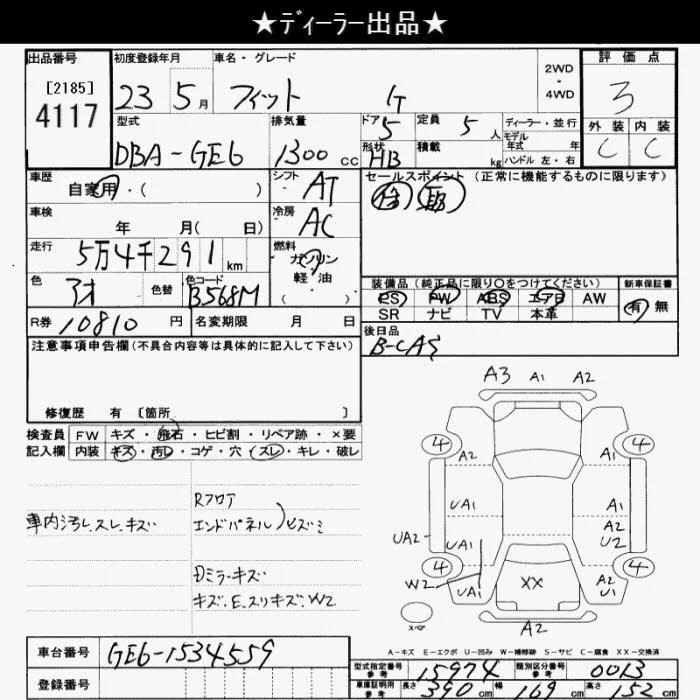 ★ディーラー出品★
出品番号
[2185]
4117
初度登録年月
23 5月
車名・グレード
フィット G
2WD
・
4WD
評価点
3
外装 内装
C C
型式
DBA-GE6
排気量
1300cc
ドア
5
形状
HB
定員
5人
積載
kg
ディーラー・並行
モデル
年式 年
ハンドル 左・右
車歴
自家用・( )
シフト
AT
セールスポイント (正常に機能するものに限ります)
車検
年 月( 日)
冷房
AC
走行
5万4千291km
燃料
ガソリン
軽・油
( )
色
アオ
色替
色コード
B568M
装備品 (純正品に限り○をつけてください)
PS PW ABS エアB AW
SR ナビ TV 本革
新車保証書
有 無
R券 10810円
名変期限 月 日
後日品
B-CAS
注意事項申告欄(不具合内容等は具体的に記入して下さい)
修復歴 有 〔箇所 〕
検査員
記入欄
FW キズ・飛石・ヒビ割・リペア跡・×要
内装 キズ・汚レ・コゲ・穴・スレ・キレ・破レ
車内汚レ.スレ.キズ
Rフロア
エンドパネル)ヒズミ
キズ.E.スリキズ.W2
A3 A1 A2
4 4
A2 A1
UA1 A1
UA2 UA1 A2
U2
4 4
W2 UA1 XX A2
U1
スペア
A2
A-キズ E-エクボ U-凹み W-補修跡 S-サビ C-腐食 XX-交換済
車台番号 GE6-1534559
登録番号
型式指定番号
参考
15974
類別区分番号
参考
0013
車庫証明用
参考
長さ 390cm 幅 169cm 高さ 152cm